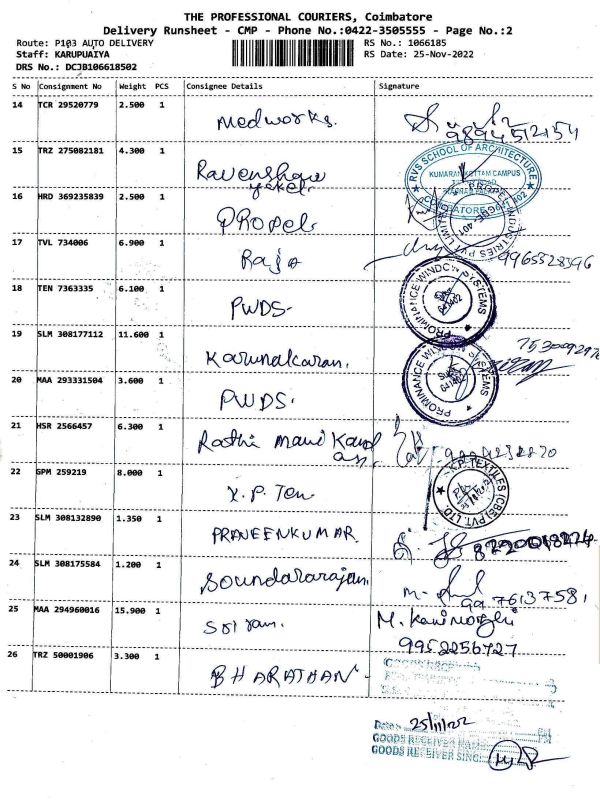 THE PROFESSIONAL COURIERS, Coimbatore
Delivery Runsheet - CMP - Phone No.:0422-3505555 - Page No.:2
Route: P103 AUTO DELIVERY RS No.: 1066185
Staff: KARUPUAIYA RS Date: 25-Nov-2022
DRS No.: DCJB106618502
S No Consignment No Weight PCS Consignee Details Signature
14 TCR 29520779 2.500 1 Medworks. 9894512154
15 TRZ 275082181 4.300 1 Ravenshaw
RVS SCHOOL OF ARCHITECTURE
KUMARAN KOTTAM CAMPUS
COIMBATORE 641 402
16 HRD 369235839 2.500 1 PROPEL
PROPEL INDUSTRIES PVT LIMITED
17 TVL 734006 6.900 1 Raja 9965528396
18 TEN 7363335 6.100 1 PWDS-
PROMINANCE WINDOW SYSTEMS
19 SLM 308177112 11.600 1 Karunakaran.
20 MAA 293331504 3.600 1 PWDS.
PROMINANCE WINDOW SYSTEMS
21 HSR 2566457 6.300 1 Rathi Mani Kand
an.
22 GPM 259219 8.000 1 K.P. Tex
K.P. TEXTILES (CBE) PVT. LTD
23 SLM 308132890 1.350 1 PRAVEENKUMAR
24 SLM 308175584 1.200 1 Soundararajan
25 MAA 294960016 15.900 1 Sriram. M. Kanimozhi
9952256727
26 TRZ 50001906 3.300 1 BHARATHAN-
Date 25/11/22
GOODS RECEIVER NAME
GOODS RECEIVER SING: